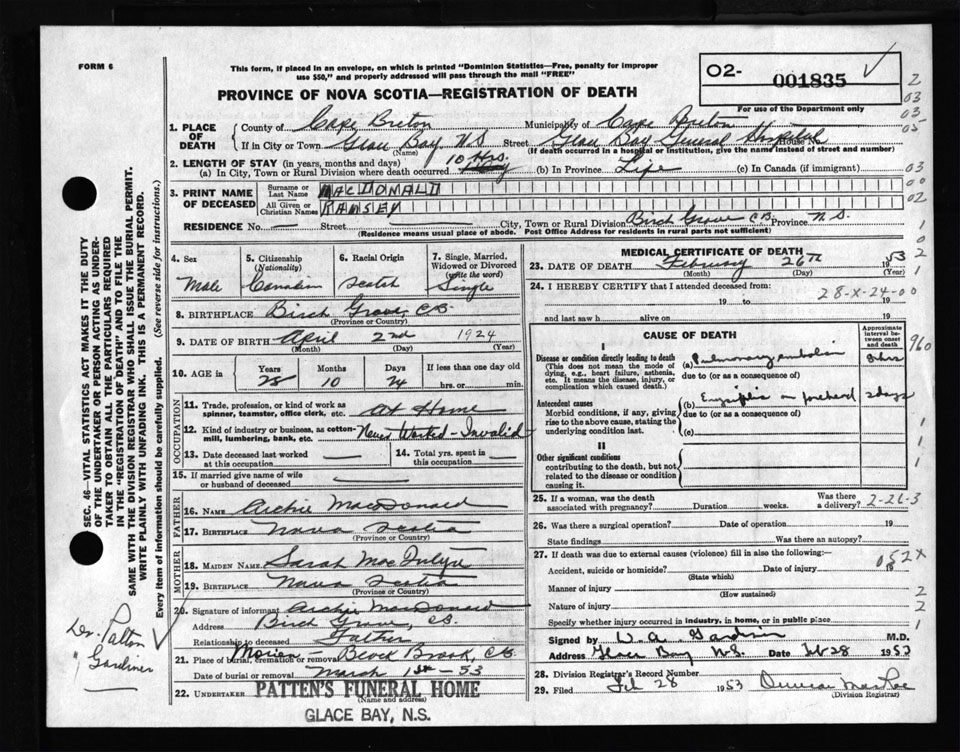 FORM 6
This form, if placed in an envelope, on which is printed "Dominion Statistics—Free, penalty for improper
use $50," and properly addressed will pass through the mail "FREE"
PROVINCE OF NOVA SCOTIA—REGISTRATION OF DEATH
O2- 001835
For use of the Department only
2
03
03
05
03
00
02
1
0
2
1
1. PLACE OF DEATH
County of Cape Breton Municipality of Cape Breton
If in City or Town Glace Bay, N.S. Street Glace Bay General Hospital House No.
(Name) (If death occurred in a hospital or institution, give the name instead of street and number)
2. LENGTH OF STAY (in years, months and days)
(a) In City, Town or Rural Division where death occurred 10 Hrs. (b) In Province Life (c) In Canada (if immigrant)
3. PRINT NAME OF DECEASED
Surname or Last Name MACDONALD
All Given or Christian Names RAMSEY
RESIDENCE No. — Street City, Town or Rural Division Birch Grove C.B. Province N.S.
(Residence means usual place of abode. Post Office Address for residents in rural parts not sufficient)
4. Sex
Male
5. Citizenship (Nationality)
Canadian
6. Racial Origin
Scotch
7. Single, Married, Widowed or Divorced (write the word)
Single
8. BIRTHPLACE Birch Grove, C.B.
(Province or Country)
9. DATE OF BIRTH April 2nd 1924
(Month) (Day) (Year)
10. AGE in Years Months Days If less than one day old
28 10 24 hrs. or min.
OCCUPATION
11. Trade, profession, or kind of work as spinner, teamster, office clerk, etc. At Home
12. Kind of industry or business, as cotton-mill, lumbering, bank, etc. Never Worked - Invalid
13. Date deceased last worked at this occupation —
14. Total yrs. spent in this occupation —
15. If married give name of wife or husband of deceased —
FATHER
16. NAME Archie MacDonald
17. BIRTHPLACE Nova Scotia
(Province or Country)
MOTHER
18. MAIDEN NAME Sarah
19. BIRTHPLACE Nova Scotia
(Province or Country)
20. Signature of informant Archie MacDonald
Address Birch Grove, C.B.
Relationship to deceased Father
21. Place of burial, cremation or removal - Block Brook, C.B.
Date of burial or removal March 1st - 53
22. UNDERTAKER PATTEN'S FUNERAL HOME
(Name and address)
GLACE BAY, N.S.
MEDICAL CERTIFICATE OF DEATH
23. DATE OF DEATH February 26th 1953
(Month) (Day) (Year)
24. I HEREBY CERTIFY that I attended deceased from:
19 to 19
28-X-24-00
and last saw h alive on 19
CAUSE OF DEATH
Approximate interval between onset and death
960
I
Disease or condition directly leading to death
(This does not mean the mode of dying, e.g., heart failure, asthenia, etc. It means the disease, injury, or complication which caused death.)
(a) Pulmonary embolism 8 hrs
due to (or as a consequence of)
Antecedent causes
Morbid conditions, if any, giving rise to the above cause, stating the underlying condition last.
(b) Erysipelas on forehead 2 days
due to (or as a consequence of)
(c)
II
Other significant conditions
contributing to the death, but not related to the disease or condition causing it.
1
1
1
25. If a woman, was the death associated with pregnancy? Duration weeks. Was there a delivery?
2-26-3
26. Was there a surgical operation? Date of operation 19
State findings Was there an autopsy?
27. If death was due to external causes (violence) fill in also the following:—
052X
Accident, suicide or homicide? Date of injury 19
(State which)
Manner of injury 2
(How sustained)
Nature of injury 2
Specify whether injury occurred in industry, in home, or in public place 1
Signed by W. A. Gardiner M.D.
Address Glace Bay N.S. Date Feb 28 1953
28. Division Registrar's Record Number
29. Filed Feb 28 1953 Duncan MacRae
(Division Registrar)
SEC. 46—VITAL STATISTICS ACT MAKES IT THE DUTY
OF THE UNDERTAKER OR PERSON ACTING AS UNDER-
TAKER TO OBTAIN ALL THE PARTICULARS REQUIRED
IN THE "REGISTRATION OF DEATH" AND TO FILE THE
SAME WITH THE DIVISION REGISTRAR WHO SHALL ISSUE THE BURIAL PERMIT.
WRITE PLAINLY WITH UNFADING INK. THIS IS A PERMANENT RECORD.
Every item of information should be carefully supplied. (See reverse side for instructions.)
Dr. Patton
" Gardiner